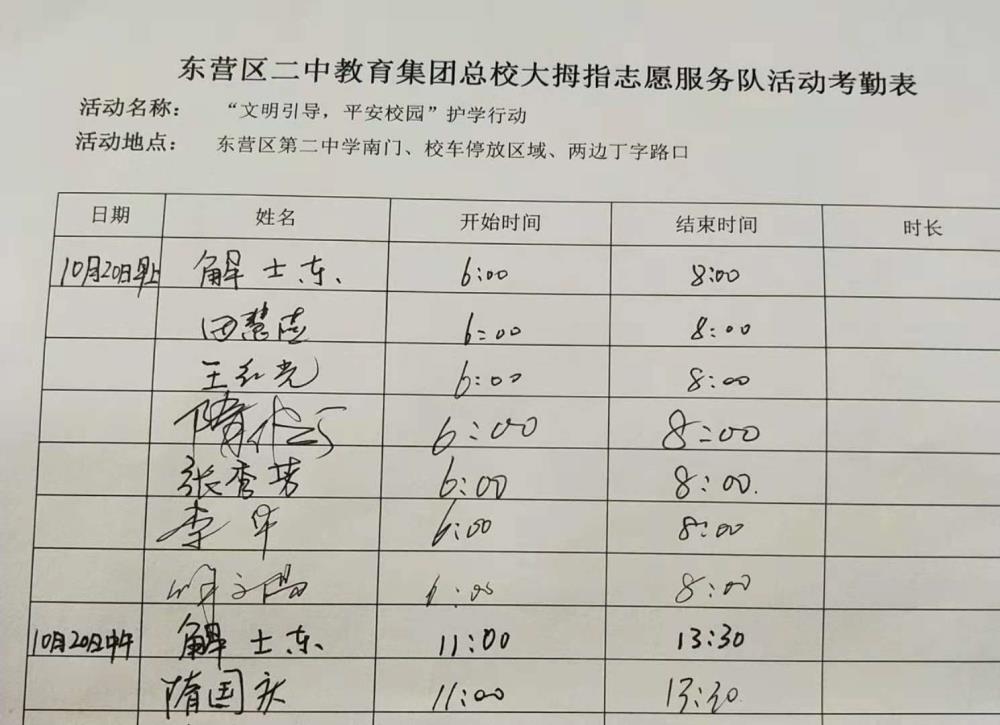 东营区二中教育集团总校大拇指志愿服务队活动考勤表
活动名称： “文明引导，平安校园”护学行动
活动地点： 东营区第二中学南门、校车停放区域、两边丁字路口
日期 姓名 开始时间 结束时间 时长
10月20日早上 解士东 6:00 8:00
田慧 6:00 8:00
王红光 6:00 8:00
隋 6:00 8:00
张秀芳 6:00 8:00
李华 6:00 8:00
6:00 8:00
10月20日中午 解士东 11:00 13:30
隋国庆 11:00 13:30